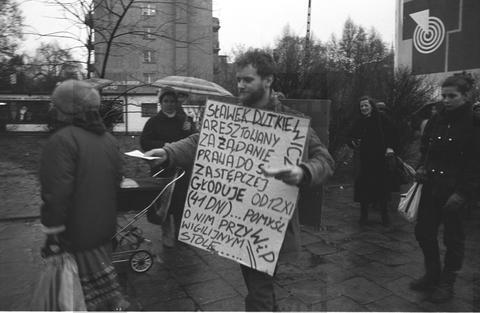 SŁAWEK DUTKIEWICZ
ARESZTOWANY
ZA ŻĄDANIE
PRAWA DO SŁ.
ZASTĘPCZEJ
GŁODUJE OD 12 XI
(41 DNI)... POMYŚL
O NIM PRZY
WIGILIJNYM
STOLE....